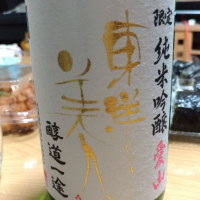 限定
純米吟醸
愛山
東洋美人
醇道一途